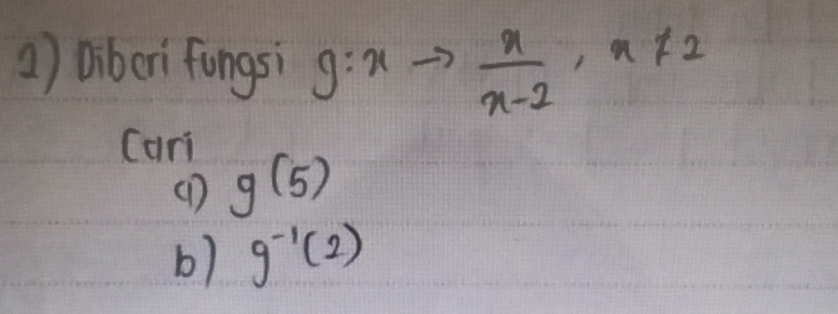 2) Diberi fungsi g : x → x/(x-2) , x ≠ 2
Cari
a) g(5)
b) g⁻¹(2)